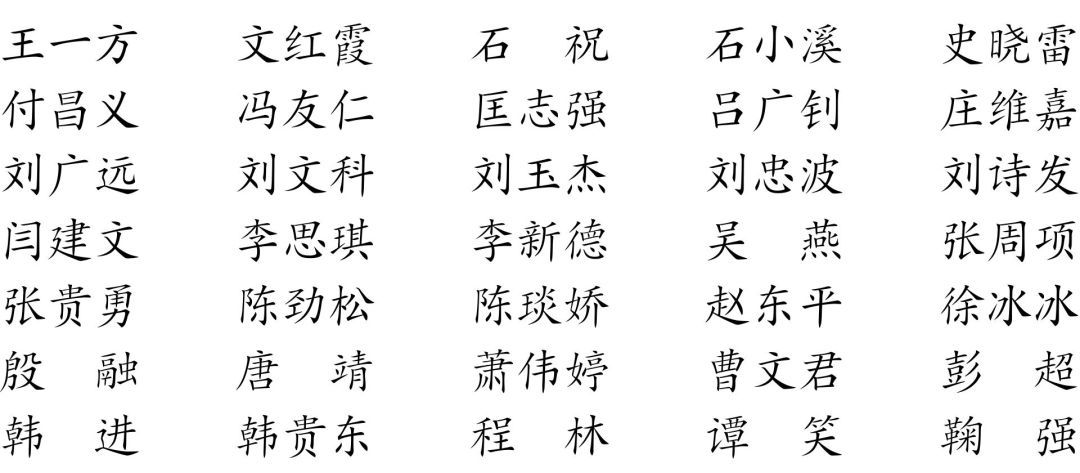 王一方 文红霞 石 祝 石小溪 史晓雷
付昌义 冯友仁 匡志强 吕广钊 庄维嘉
刘广远 刘文科 刘玉杰 刘忠波 刘诗发
闫建文 李思琪 李新德 吴 燕 张周项
张贵勇 陈劲松 陈琰娇 赵东平 徐冰冰
殷 融 唐 靖 萧伟婷 曹文君 彭 超
韩 进 韩贵东 程 林 谭 笑 鞠 强